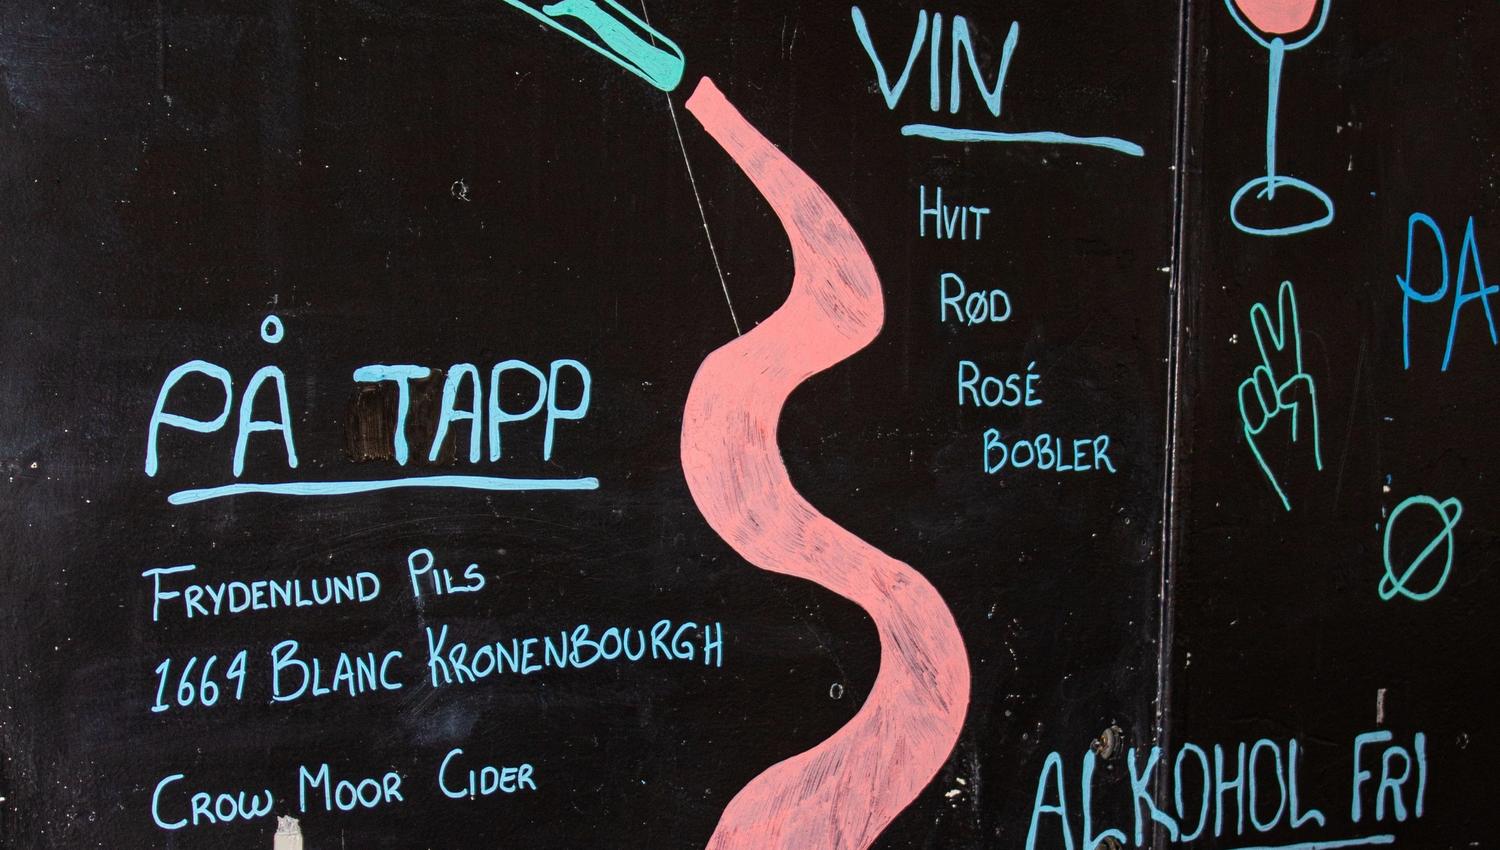 VIN
HVIT
RØD
ROSÉ
BOBLER
PÅ TAPP
FRYDENLUND PILS
1664 BLANC KRONENBOURGH
CROW MOOR CIDER
PA
Ø
ALKOHOL FRI